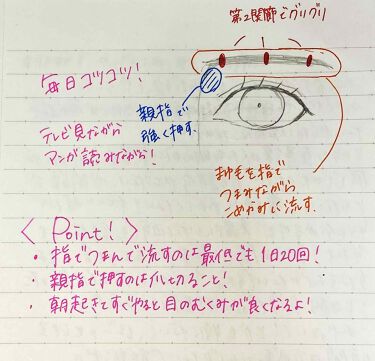 第2関節でグリグリ
毎日コツコツ！
親指で
強く押す.
テレビ見ながら
マンガ読みながら！
まゆ毛を指で
つまみながら
こめかみに流す.
〈 Point! 〉
・指でつまんで流すのは最低でも1日20回！
・親指で押すのは爪切ること！
・朝起きてすぐやると目のむくみが良くなるよ！